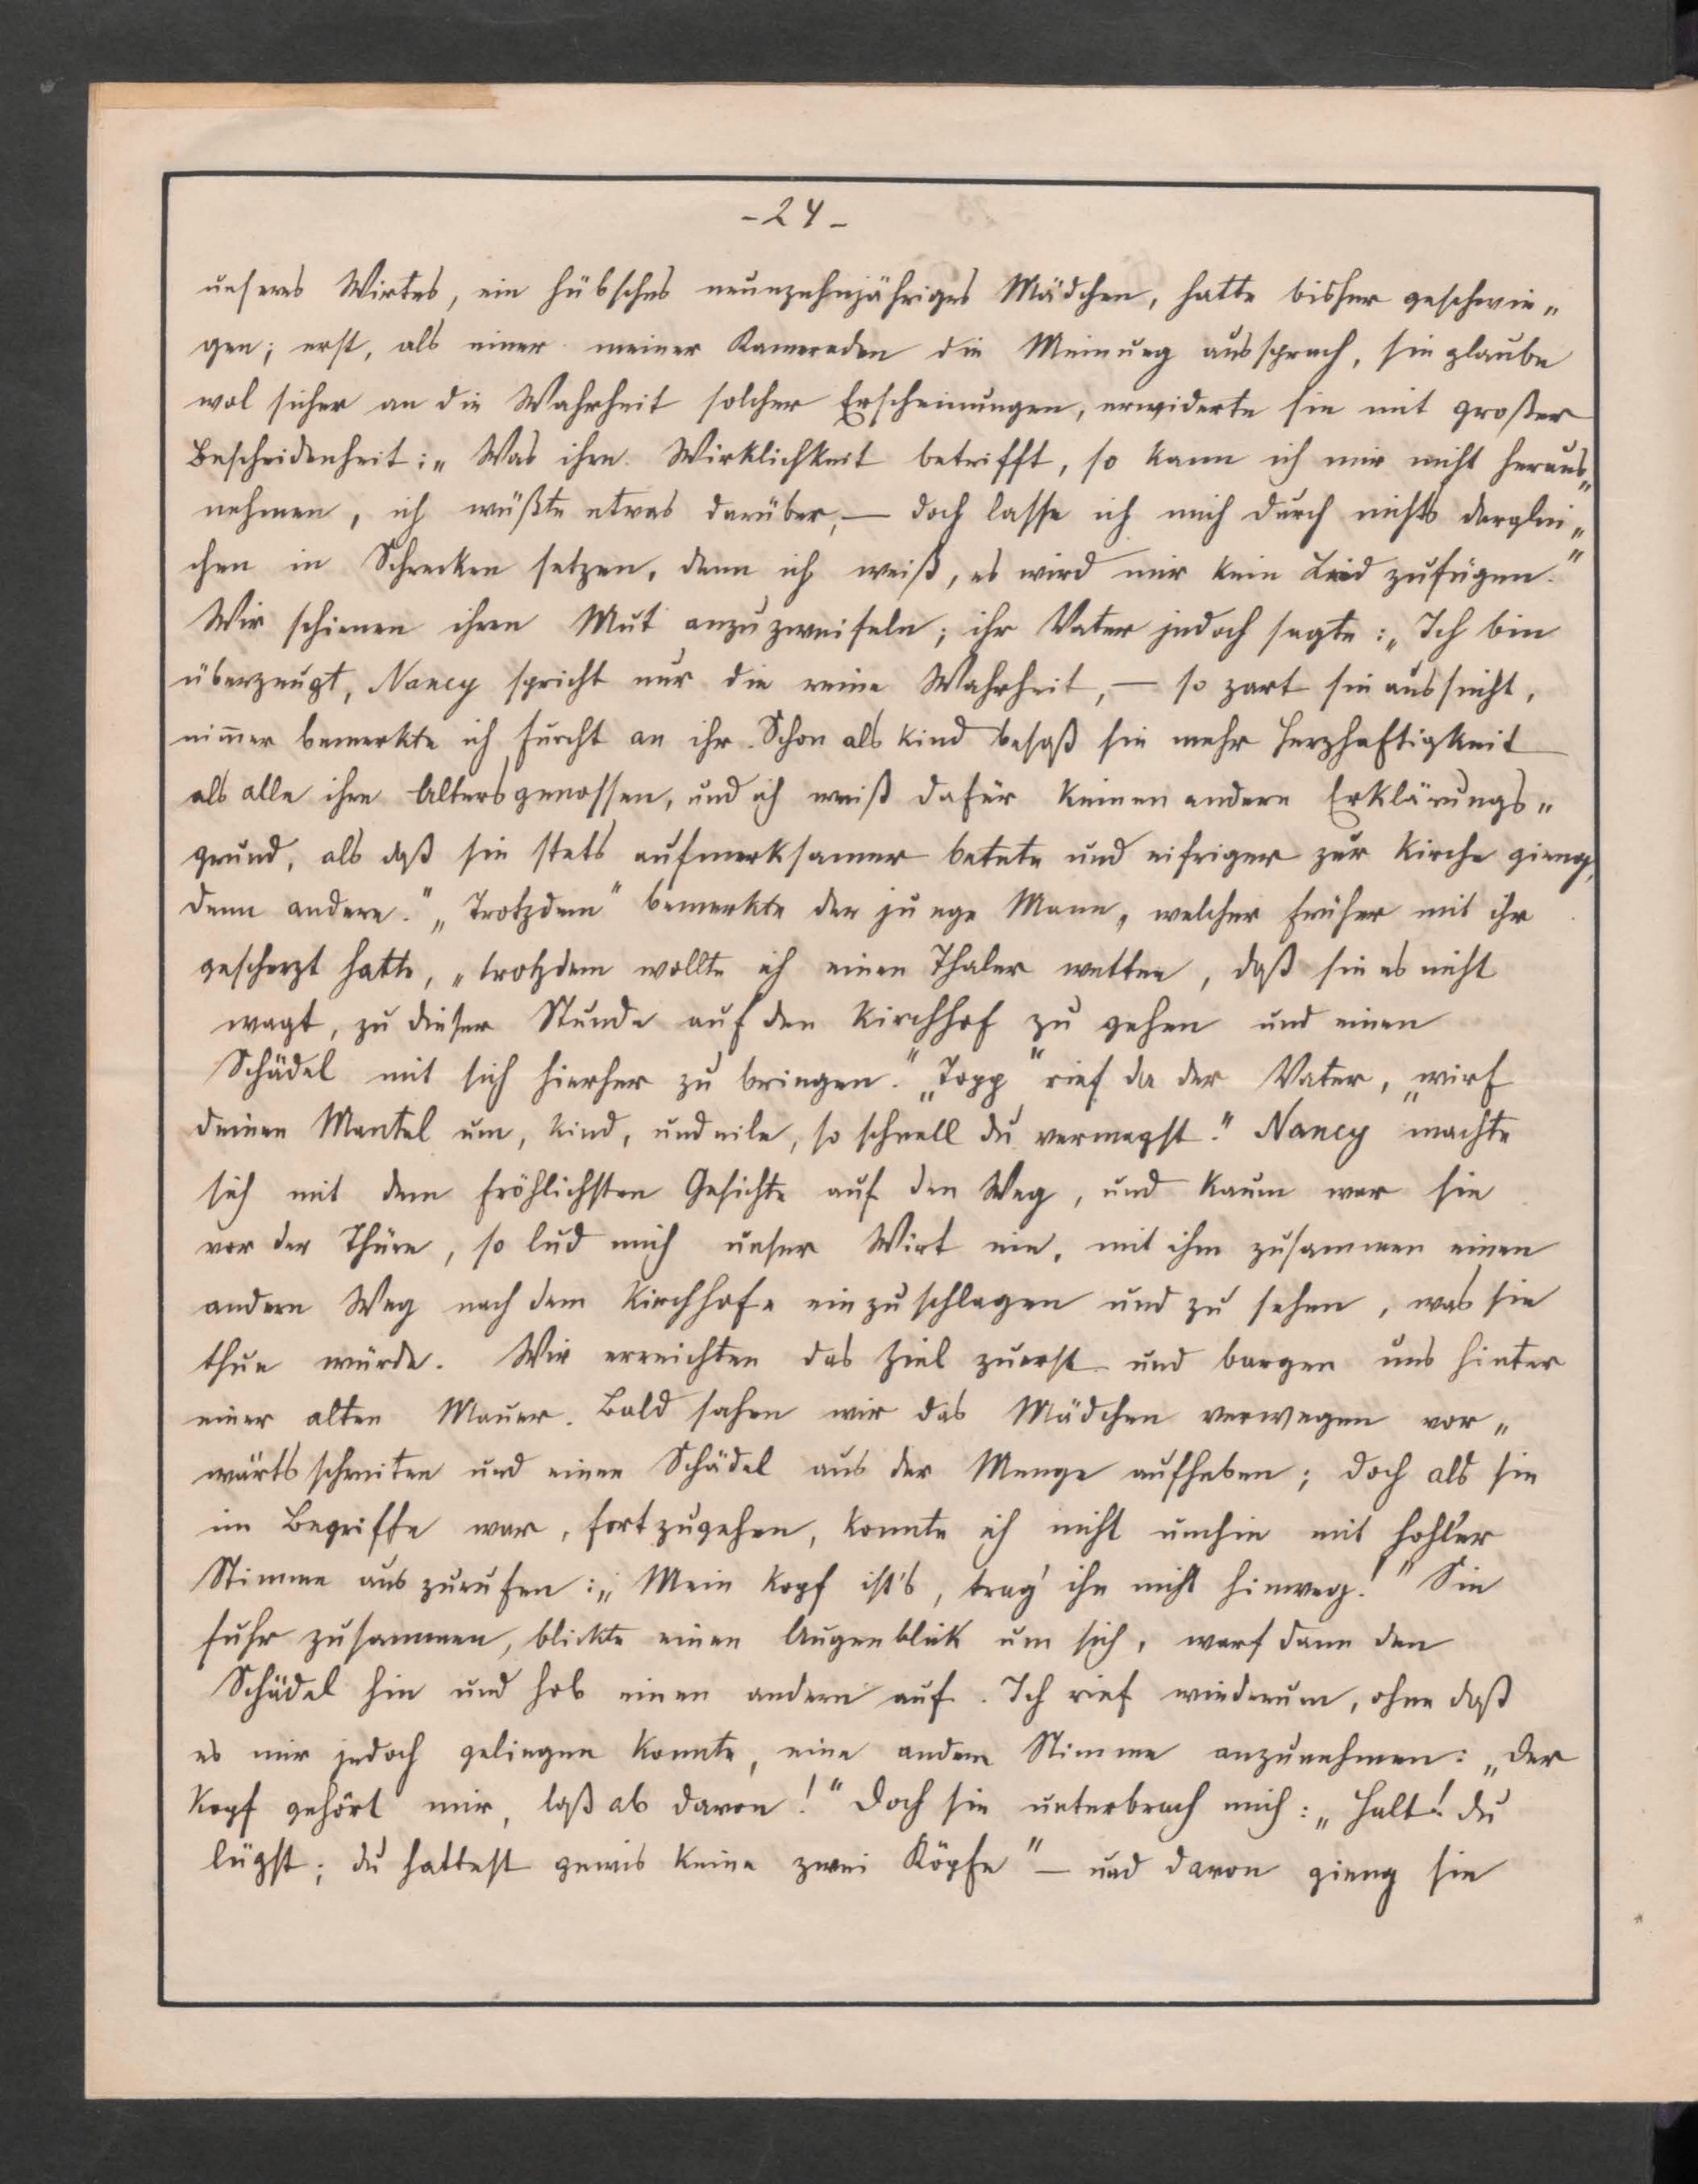 - 24 -
unseres Wirtes, ein hübsches neunzehnjähriges Mädchen, hatte bisher geschwie„
gen; erst, als einer meiner Kameraden die Meinung aussprach, sie glaube
wol sicher an die Wahrheit solcher Erscheinungen, erwiderte sie mit großer
Bescheidenheit: „Was ihre Wirklichkeit betrifft, so kann ich mir nicht heraus„
nehmen, ich wüßte etwas darüber, — doch lasse ich mich durch nichts derglei„
chen in Schrecken setzen, denn ich weiß, es wird mir kein Leid zufügen."
Wir schienen ihren Mut anzuzweifeln; ihr Vater jedoch sagte: „Ich bin
überzeugt, Nancy spricht nur die reine Wahrheit, — so zart sie aussieht,
nim̄er bemerkte ich Furcht an ihr. Schon als Kind besaß sie mehr Herzhaftigkeit
als alle ihre Altersgenossen, und ich weiß dafür keinen andern Erklärungs„
grund, als daß sie stets aufmerksamer betete und eifriger zur Kirche gieng,
denn andere." „Trotzdem" bemerkte der junge Mann, welcher früher mit ihr
gescherzt hatte, „trotzdem wollte ich einen Thaler wetten, daß sie es nicht
wagt, zu dieser Stunde auf den Kirchhof zu gehen und einen
Schädel mit sich hierher zu bringen." „Topp" rief da der Vater, „wirf
deinen Mantel um, Kind, und eile, so schnell du vermagst." Nancy machte
sich mit dem fröhlichsten Gesichte auf den Weg, und kaum war sie
vor der Thüre, so lud mich unser Wirt ein, mit ihm zusammen einen
andern Weg nach dem Kirchhofe einzuschlagen und zu sehen, was sie
thun würde. Wir erreichten das Ziel zuerst und bargen uns hinter
einer alten Mauer. Bald sahen wir das Mädchen verwegen vor„
wärts schreiten und einen Schädel aus der Menge aufheben; doch als sie
im Begriffe war, fortzugehen, konnte ich nicht umhin mit hohler
Stimme auszurufen: „Mein Kopf ist's, trag' ihn nicht hinweg!" Sie
fuhr zusammen, blickte einen Augenblick um sich, warf dann den
Schädel hin und hob einen andern auf. Ich rief wiederum, ohne daß
es mir jedoch gelingen konnte, eine andere Stimme anzunehmen: „Der
Kopf gehört mir, laß ab davon!" Doch sie unterbrach mich: „Halt! du
lügst; du hattest gewis keine zwei Köpfe" — und davon gieng sie